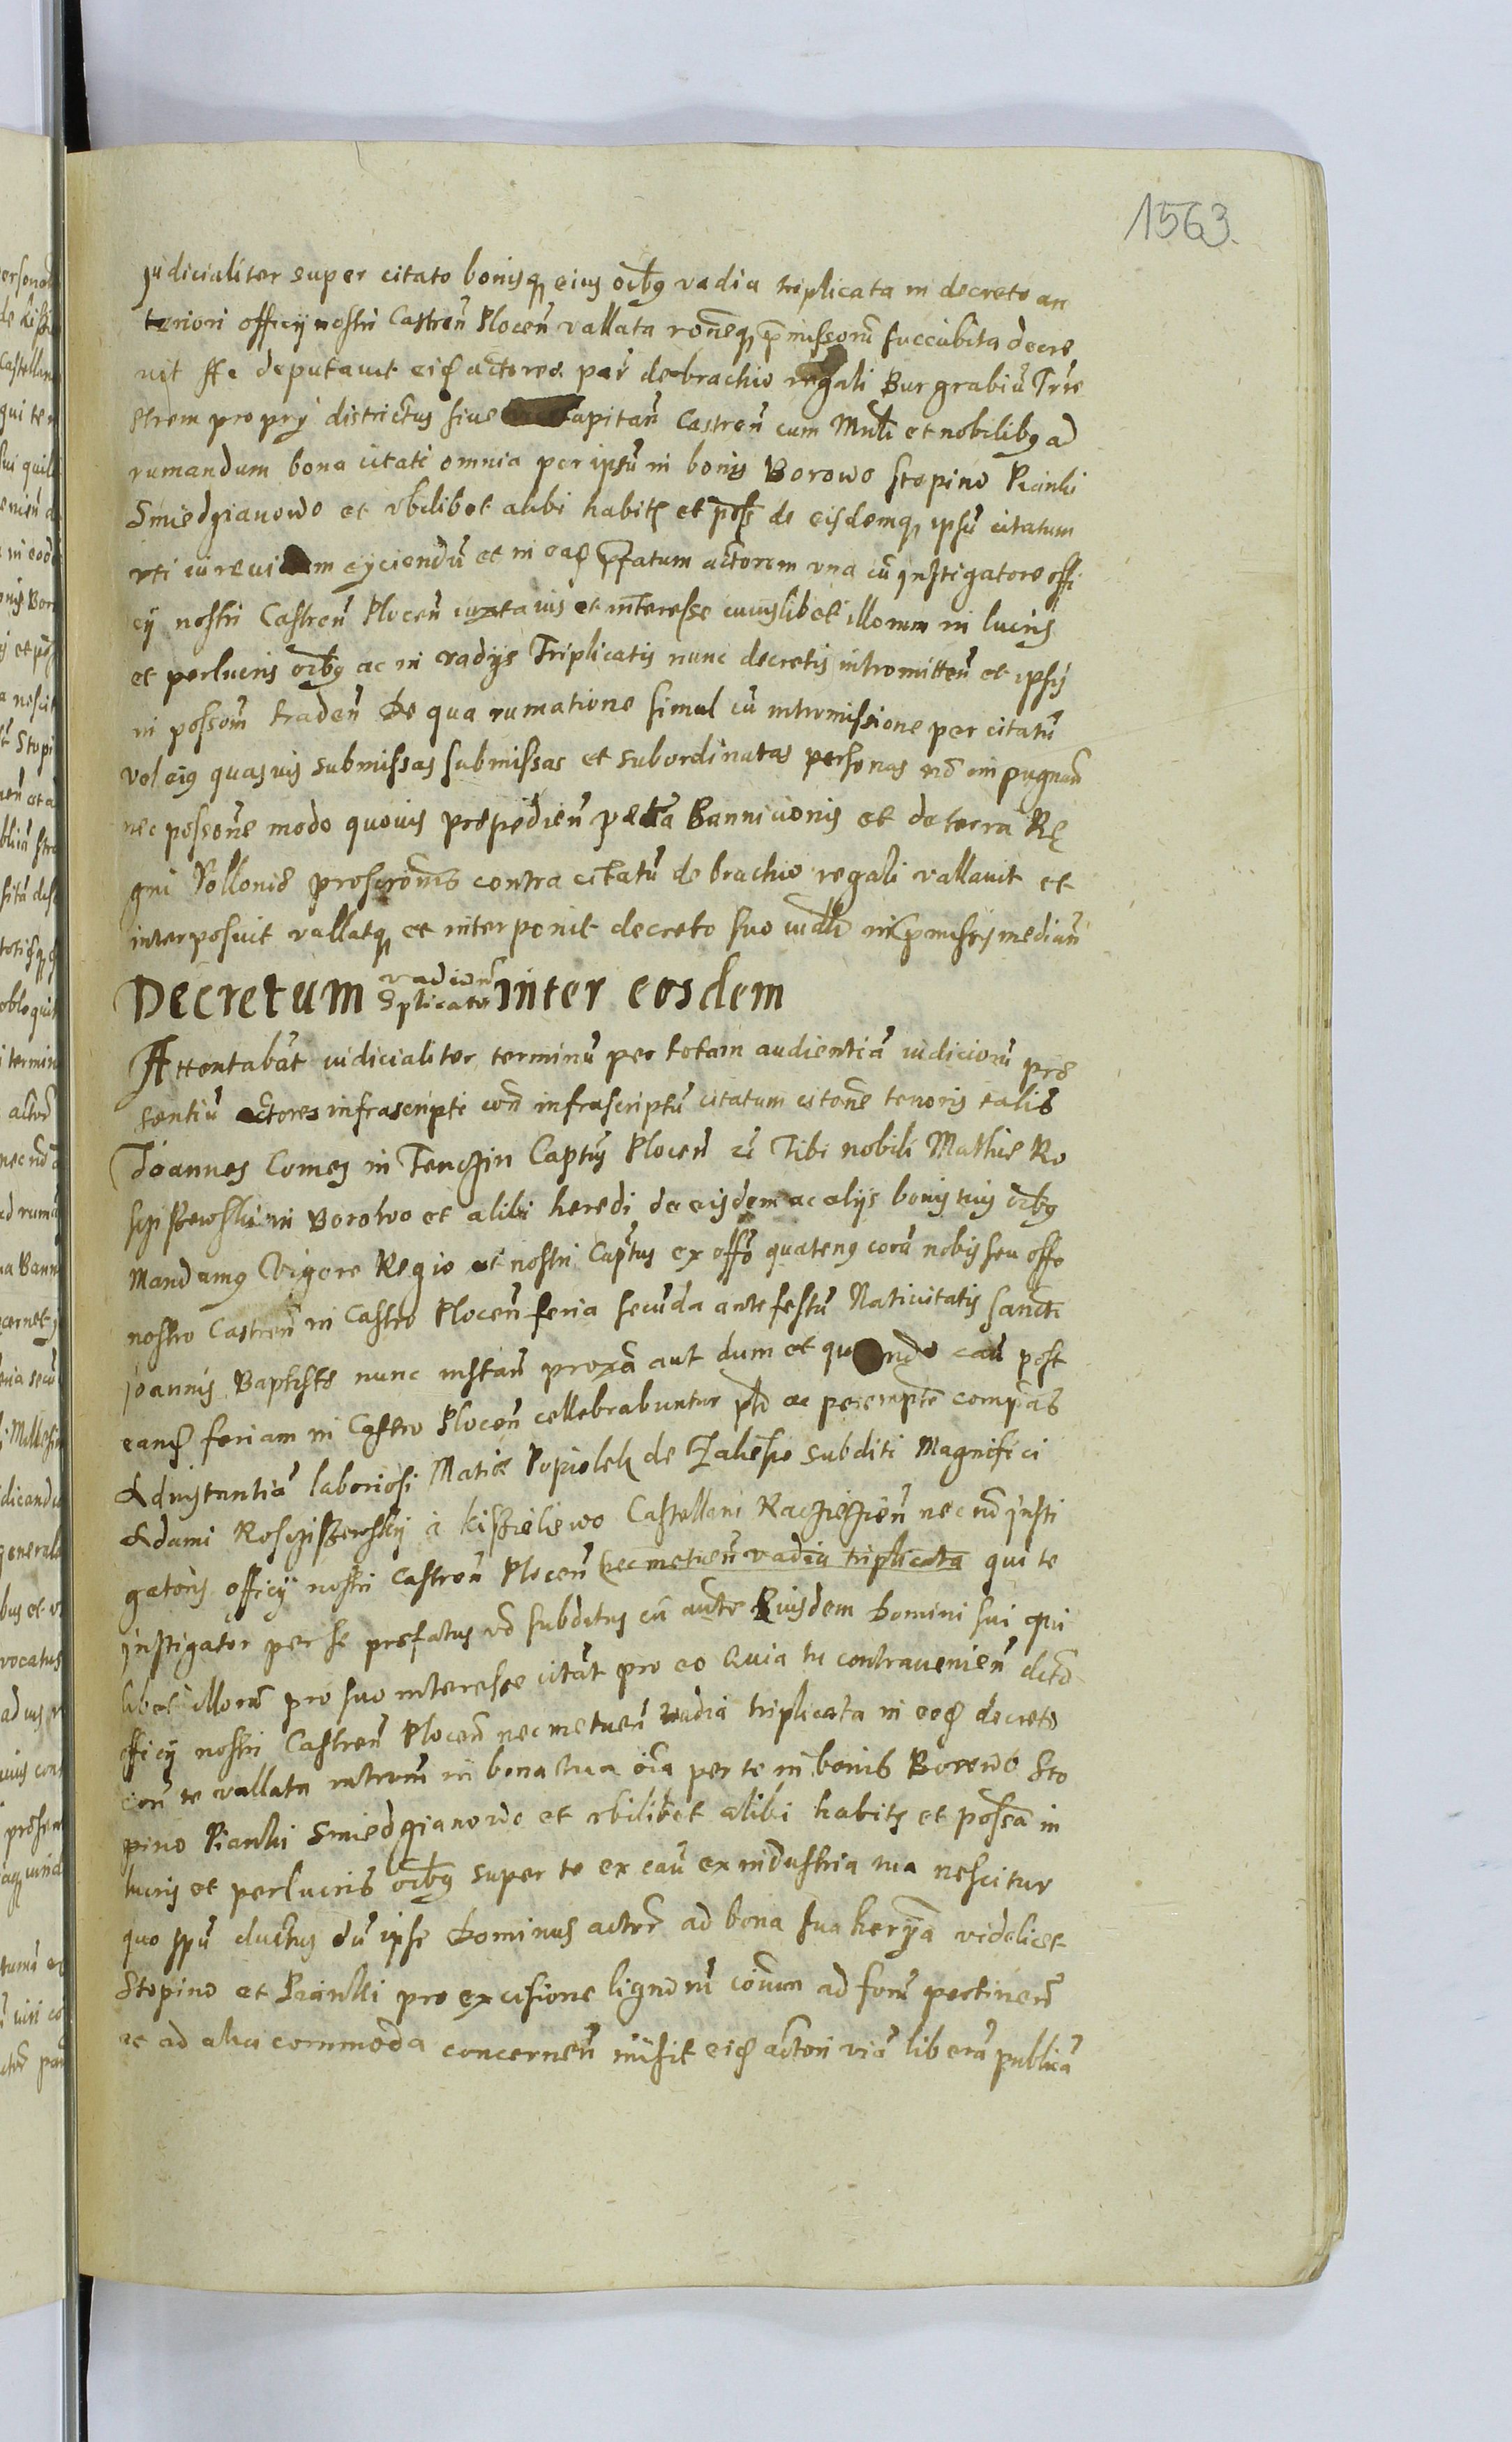 1563.
Judicialiter super citato bonisq eius oibg vadia triplicata in decreto an
teriori officij nostri Castren̄ Plocen̄ vallata roneq p̄missorū succubita decre
uit Et deputauit eisd actores par de brachio regali Burgrabiū Trre
strem proprij districtus siue Capitan̄ Castren̄ cum Mnli et nobilibg ad
rumandum bona citati omnia per ipsū in bonis Borowo Stopino Pianki
Smiedzianowo et vbilibet alibi habit et poss de eisdemq ipsū citatum
vti iure eijciendū et in ead p̄fatum actorem vna cū Instigatore offi
cij nostri Castren̄ Plocen̄ iuxta ius et interesse cuiuslibet illorum in lucris
et perlucris oibg ac in vadijs Triplicatis nunc decretis intromitten̄ et ipsis
in possom̄ traden̄ De qua rumatione simul cū intromissione per citatū
vel eig quasuis submissas submissas et subordinatas personas nō impugnan̄
nec possone modo quouis prepedien̄ pœna Bannicionis et de terra Re
gni Polloniæ proscronis contra citatū de brachio regali vallauit et
interposuit vallatq et interponit decreto suo iudli in p̄missis median̄
Decretum vadiorū 3plicator inter eosdem
Attentabāt iudicialiter terminū per totam audientiā iudiciorū præ
sentiū actores infrascripti con̄ infrascriptū citatum citone tenoris talis
Joannes Comes in Tenczin Captus Plocen̄ Tibi nobili Mathiæ Ro
scziszewski in Borowo et alibi heredi de eisdem ac alijs bonis tuis oibg
Mandamg Vigore Regio et nostri Captus ex offo quateng corā nobis seu offo
nostro Castren̄ in Castro Plocen̄ feria secūda ante festū Natiuitatis Sancti
Joannis Baptistæ nunc instan̄ proxā aut dum et quando cau post
eand feriam in Castro Plocen̄ cellebrabuntur ptō ac perempte compās
Ad instantiā laboriosi Matiæ Popiolek de Zalesie subditi Magnifici
Adami Rosciszewskij à Kisielewo Castellani Raczięzien̄ nec nō Insti
gatoris officij nostri Castren̄ Plocen̄ nec metuen̄ vadia triplicata qui te
Instigator per se præfatus vō subditus cū auctē Eiusdem Domini sui qui
libet illorū pro suo interesse citāt pro eo Quia tu contrauenien̄ dctō
officij nostri Castren̄ Plocen̄ nec metuen̄ vadia triplicata in eod decreto
con̄ te vallata intrōm̄ in bona tua oīa per te in bonis Borowo Sto
pino Pianki Smiedzianowo et vbilibet alibi habita et possa in
lucris et perlucris oibg super te ex cau ex industria tua nescitur
quo spū ductus dū ipse Dominus actor ad bona sua heria videlicet
Stopino et Pianki pro excisione lignorū ad forū pertinen̄
ac ad alia commoda concernen̄ misit eisd actori viā liberā publicā